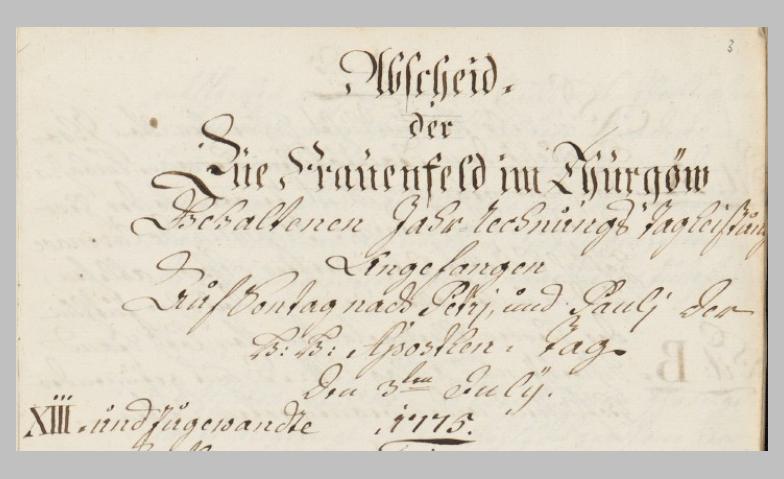 3
Abscheid.
der
Züe Frauenfeld im Thürgöw
Gehaltenen Jahr-Rechnüngs Tagleistüng
Angefangen
Aüf Sontag nach Petrj, und Paulj der
H: H: Apostlen. Tag
den 3ten Julÿ.
XIII. und Zugewandte 1775.